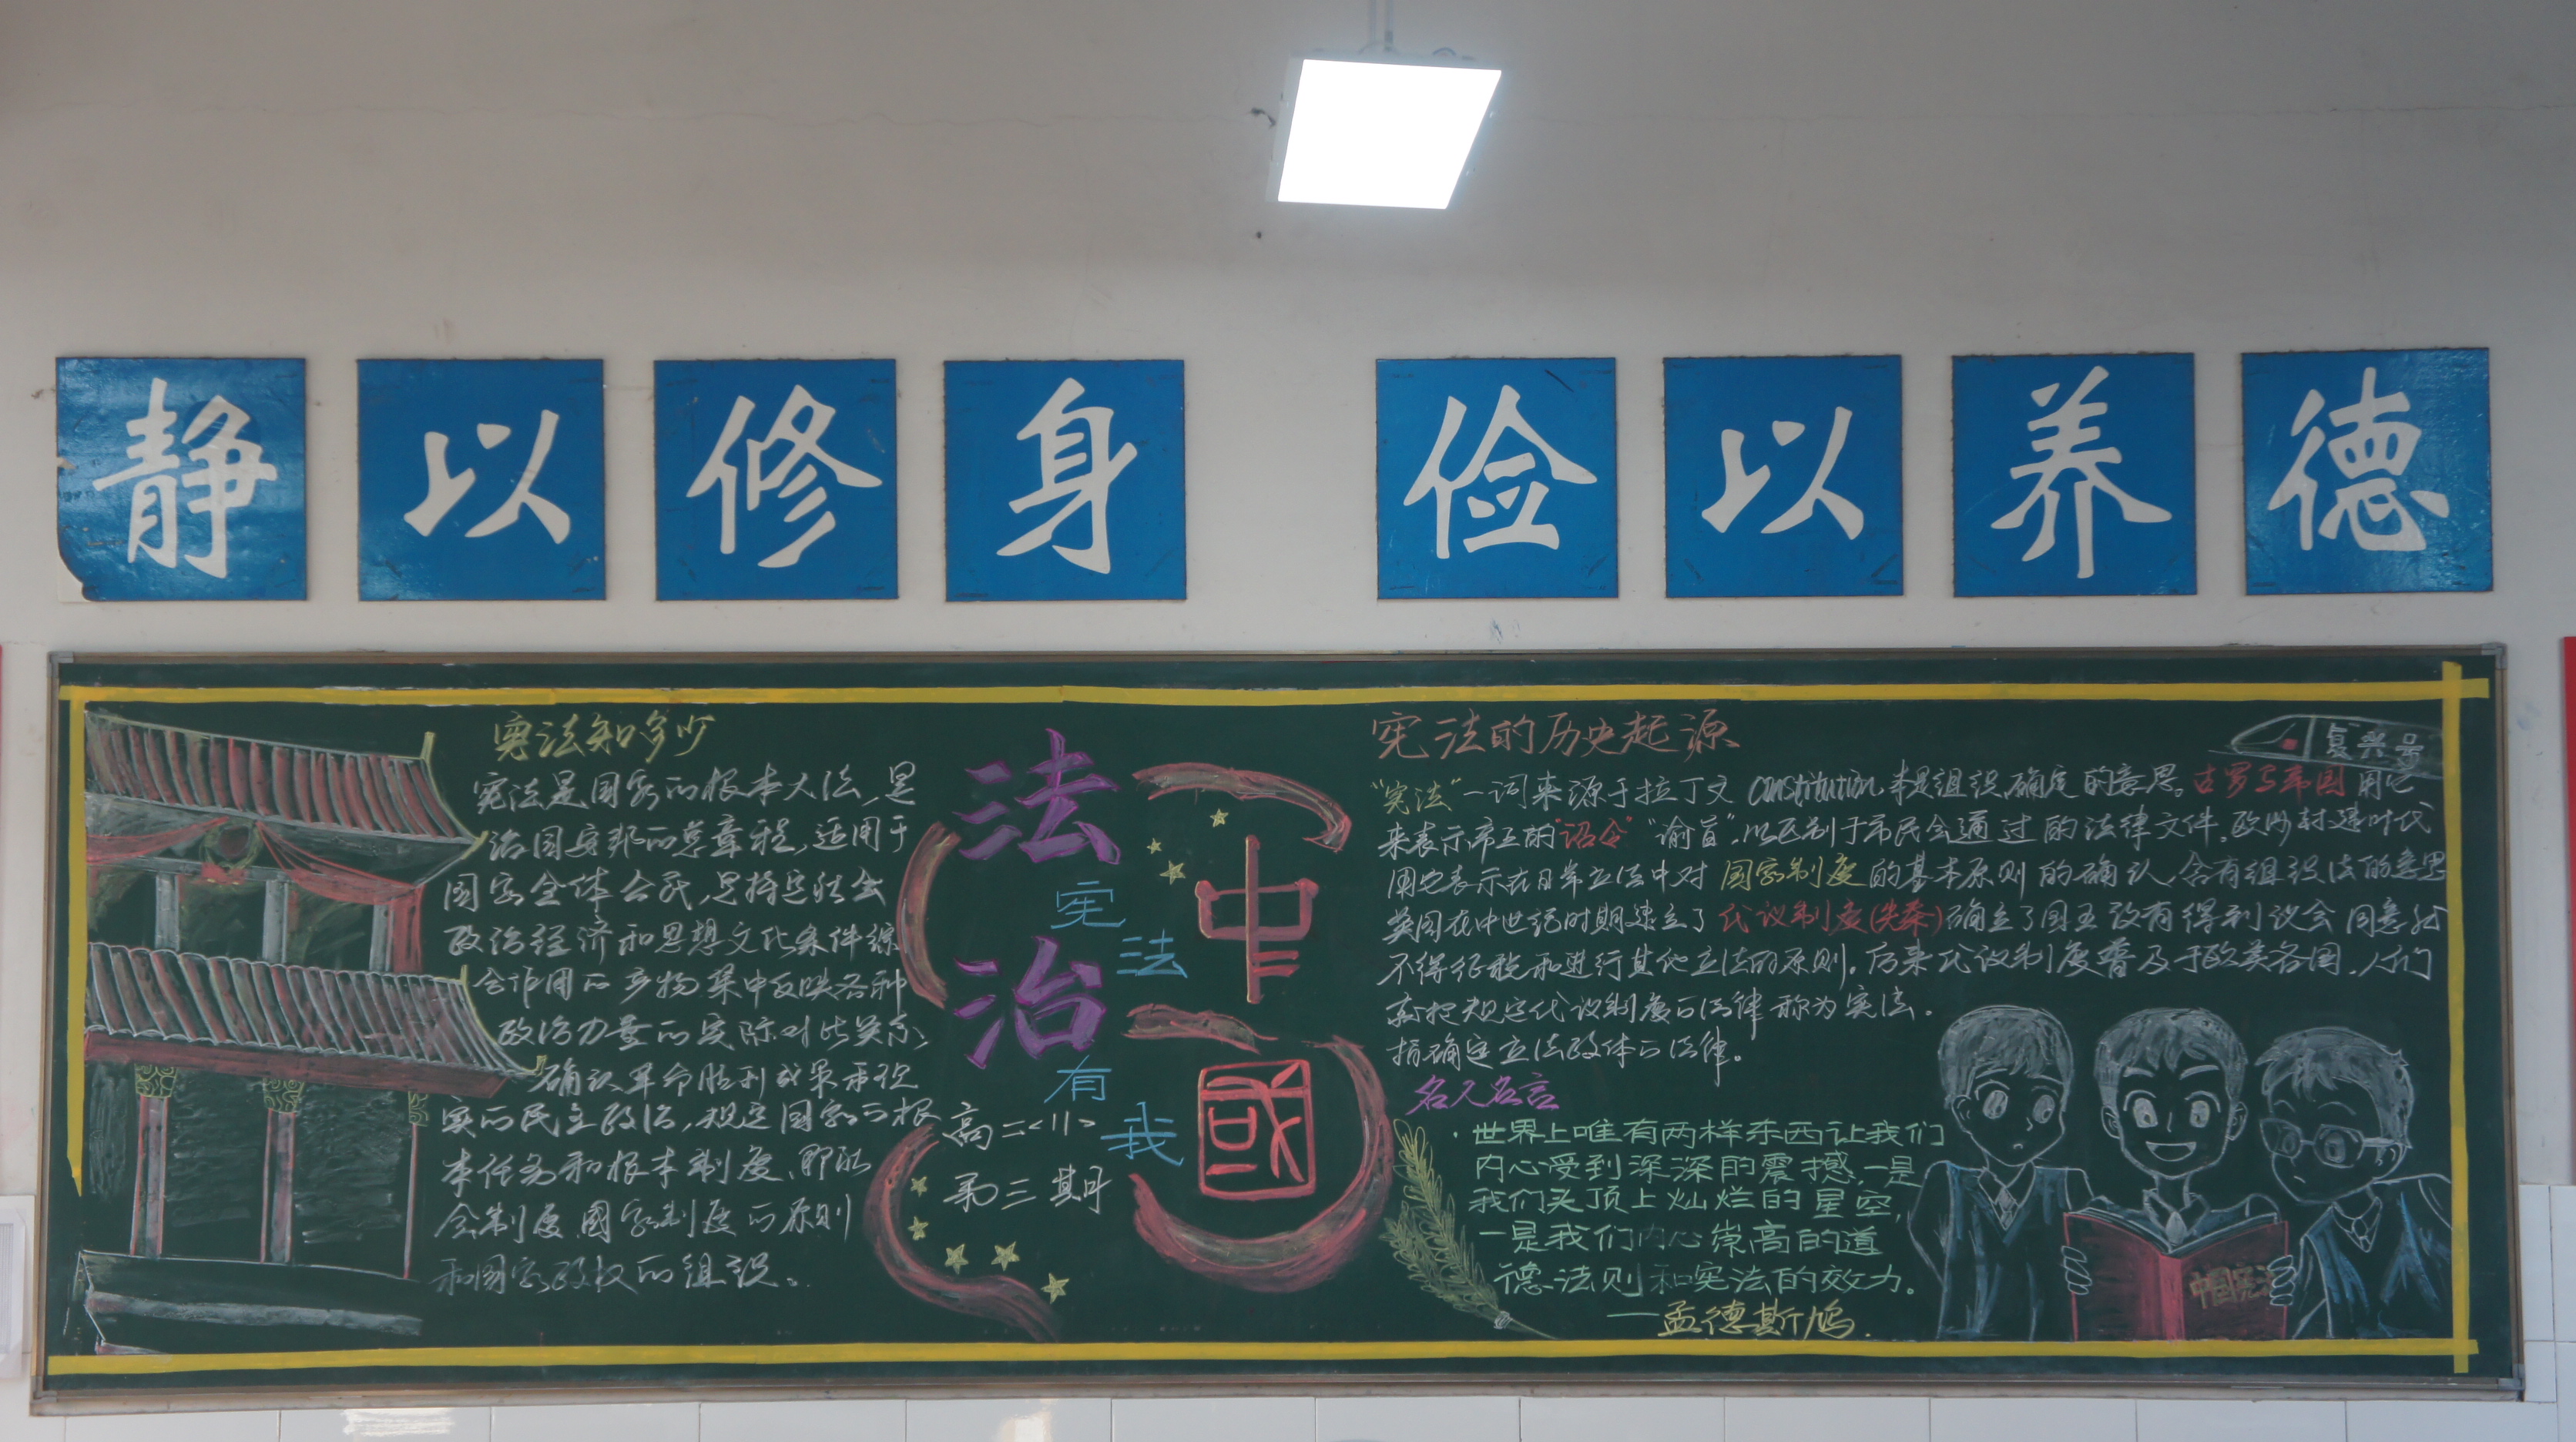 静以修身 俭以养德
宪法知多少
宪法是国家的根本大法,是
治国安邦的总章程,适用于
国家全体公民,是特定社会
政治经济和思想文化条件综
合作用的产物集中反映各种
政治力量的实际对比关系,
确认革命胜利成果和现
实的民主政治,规定国家的根
本任务和根本制度,即社
会制度、國家制度的原则
和国家政权的组织。
法治
中國
宪法有我
高二<11>
第三期
宪法的历史起源
复兴号
"宪法"一词来源于拉丁文 constitution,本是组织、确定的意思。古罗马帝国用它
来表示帝王的"诏令""谕旨",以区别于市民会通过的法律文件。欧洲封建时代
用它表示在日常立法中对国家制度的基本原则的确认,含有组织法的意思
英国在中世纪时期建立了代议制度 确立了国王没有得到议会同意就
不得征税和进行其他立法的原则。后来代议制度普及于欧美各国,人们
就把规定代议制度的法律称为宪法。
指确定立法政体的法律。
名人名言
·世界上唯有两样东西让我们
内心受到深深的震撼,一是
我们头顶上灿烂的星空,
一是我们内心崇高的道
德法则和宪法的效力。
—孟德斯鸠.
中国宪法